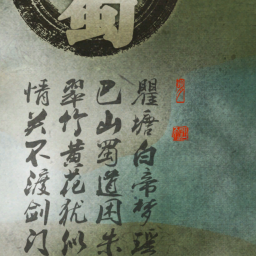 蜀
瞿塘白帝梦瑶
巴山蜀道困朱
翠竹黄花犹似
情关不渡剑门